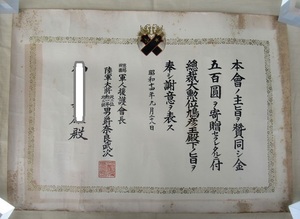 本會ノ主旨ヲ賛同シ金
五百圓ヲ寄贈セラレタルニ付
總裁大勲位鳩彦王殿下ノ旨ヲ
奉シ謝意ヲ表ス
昭和十四年九月二十八日
軍人援護會長
陸軍大將 男爵奈良武次
殿